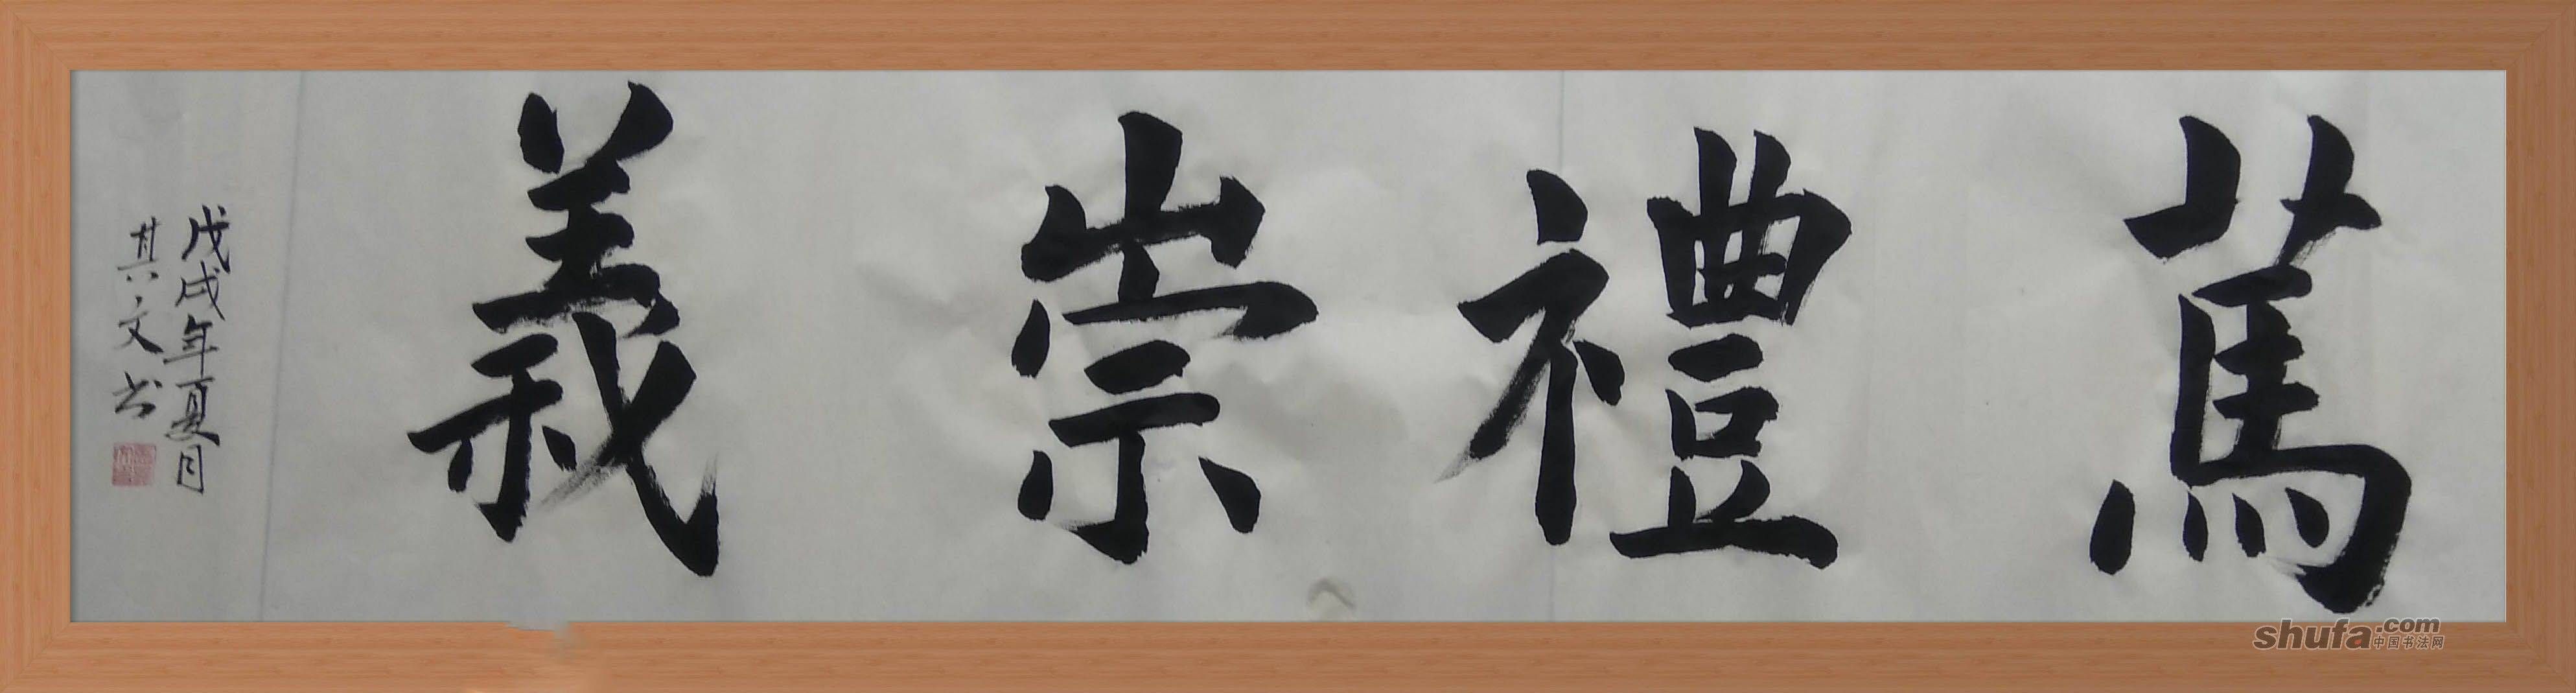 篤禮崇義
戊戌年夏月
其文书
shufa.com
中国书法网